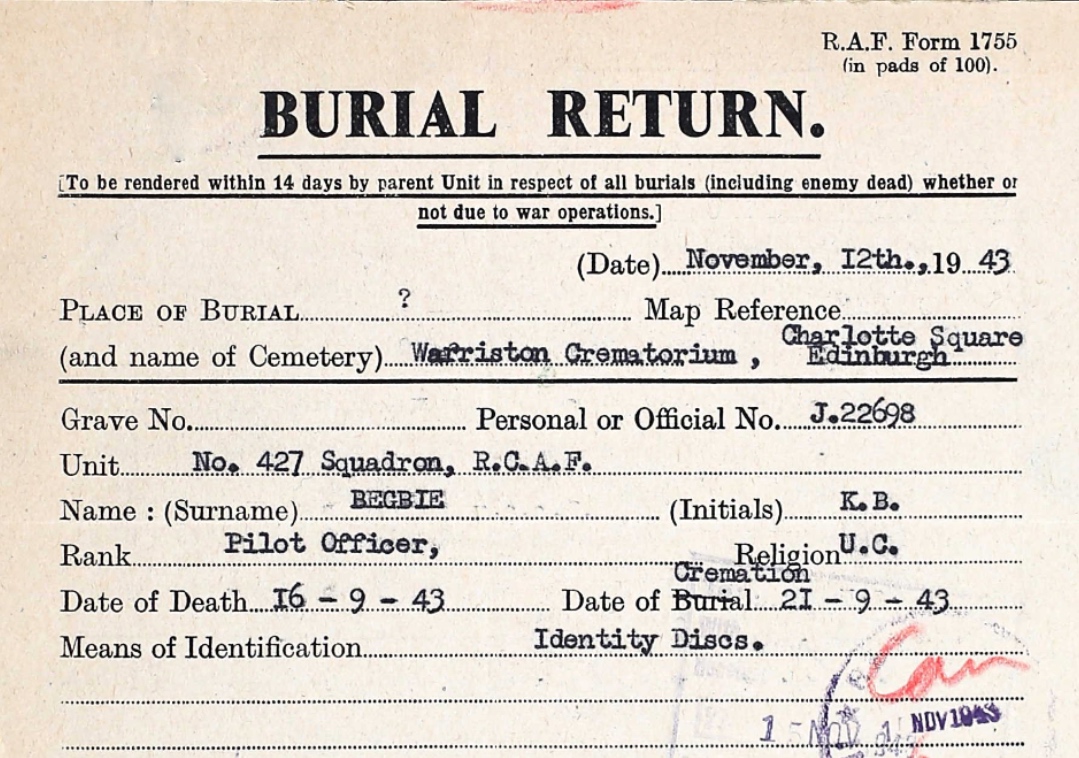 R.A.F. Form 1755
(in pads of 100).
BURIAL RETURN.
[To be rendered within 14 days by parent Unit in respect of all burials (including enemy dead) whether or
not due to war operations.]
(Date) November, I2th., 19 43
PLACE OF BURIAL ? Map Reference
Charlotte Square
(and name of Cemetery) Warriston Crematorium , Edinburgh
Grave No. Personal or Official No. J.22698
Unit No. 427 Squadron, R.C.A.F.
Name : (Surname) BEGBIE (Initials) K.B.
Rank Pilot Officer, Religion U.C.
Cremation
Date of Death I6 - 9 - 43 Date of Burial 2I - 9 - 43
Means of Identification Identity Discs.
Can
NOV 1943
15 NOV